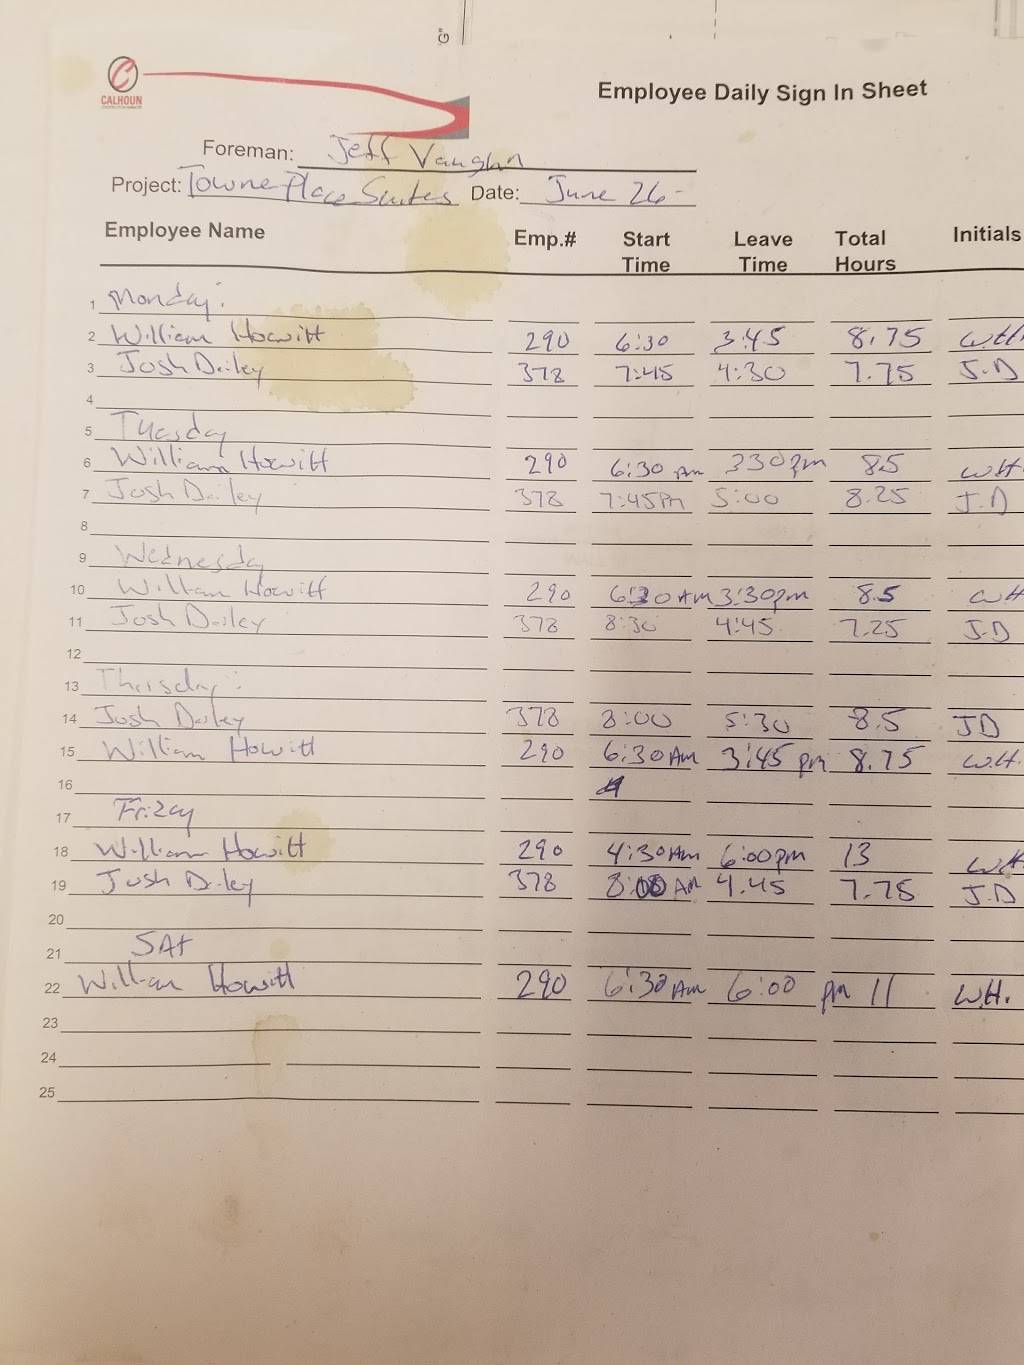 G"
CALHOUN
Employee Daily Sign In Sheet
Foreman: Jeff Vaughn
Project: Towne Place Suites Date: June 26-
Employee Name Emp.# Start Time Leave Time Total Hours Initials
1 Monday:
2 William Howitt 290 6:30 3:45 8.75 W.H.
3 Josh Dailey 378 7:45 4:30 7.75 J.D
4
5 Tuesday
6 William Howitt 290 6:30 Am 330pm 8.5 W.H.
7 Josh Dailey 378 7:45Am 5:00 8.25 J.D
8
9 Wednesday
10 William Howitt 290 6:30 AM 3:30pm 8.5 WH
11 Josh Dailey 378 8:30 4:45 7.25 J.D
12
13 Thursday:
14 Josh Dailey 378 8:00 5:30 8.5 JD
15 William Howitt 290 6:30 Am 3:45 pm 8.75 W.H.
16
17 Friday
18 William Howitt 290 4:30Am 6:00pm 13 WH
19 Josh Dailey 378 8:00 AM 4.45 7.75 J.D
20
21 SAt
22 William Howitt 290 6:30 Am 6:00 pm 11 W.H.
23
24
25